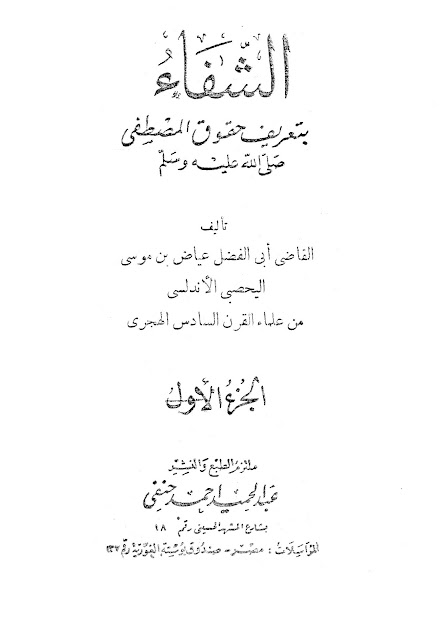 الشِّفَاءُ
بتعريف حقوق المصطفى
صَلَّى اللَّهُ عَلَيْهِ وَسَلَّمَ
تأليف
القاضى أبى الفضل عياض بن موسى
اليحصبى الأندلسى
من علماء القرن السادس الهجرى
الجُزءُ الأوّلُ
ملتزم الطبع والنشر
عبد الحميد أحمد حنفى
بشارع المشهد الحسينى رقم ١٨
المراسلات : مصر - صندوق بوستة الغورية رقم ١٣٧